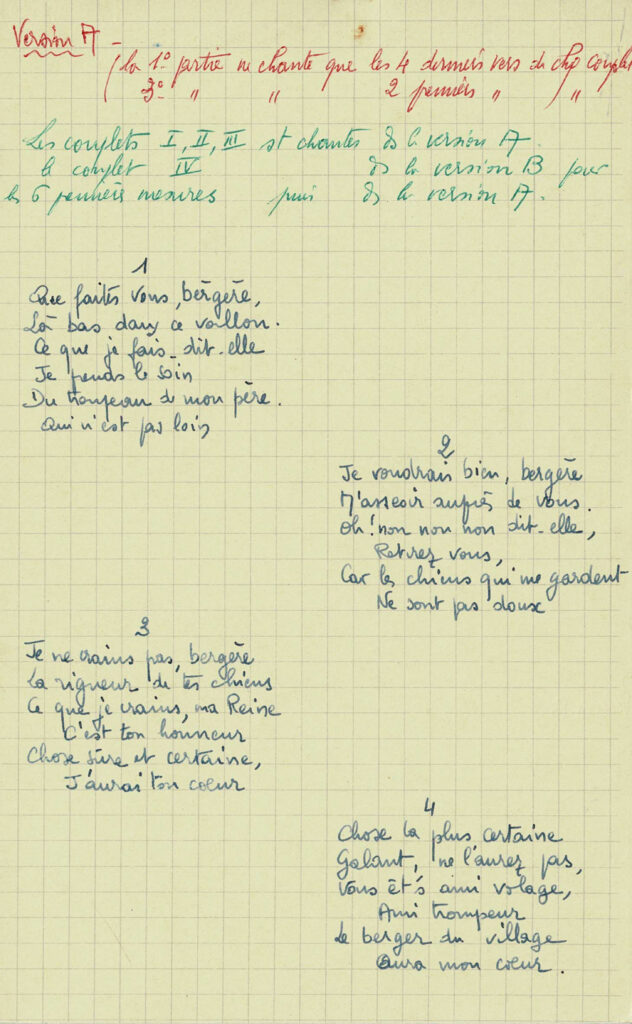 Version A -
(la 1º partie ne chante que les 4 derniers vers de chq couplet
3º " " 2 premiers " "
Les couplets I, II, III st chantés ds la version A.
le couplet IV ds la version B pour
les 6 premières mesures puis ds la version A.
1
Que faites vous, bergère,
Là bas dans ce vallon.
Ce que je fais - dit-elle
Je prends le soin
Du troupeau de mon père.
Qui n'est pas loin
2
Je voudrais bien, bergère
M'asseoir auprès de vous.
Oh! non non non dit-elle,
Retirez vous,
Car les chiens qui me gardent
Ne sont pas doux
3
Je ne crains pas, bergère
La rigueur de tes chiens
Ce que je crains, ma Reine
C'est ton honneur
Chose sûre et certaine,
J'aurai ton coeur
4
Chose la plus certaine
Galant, ne l'aurez pas,
Vous êt's ami volage,
Ami trompeur
Le berger du village
Aura mon coeur.